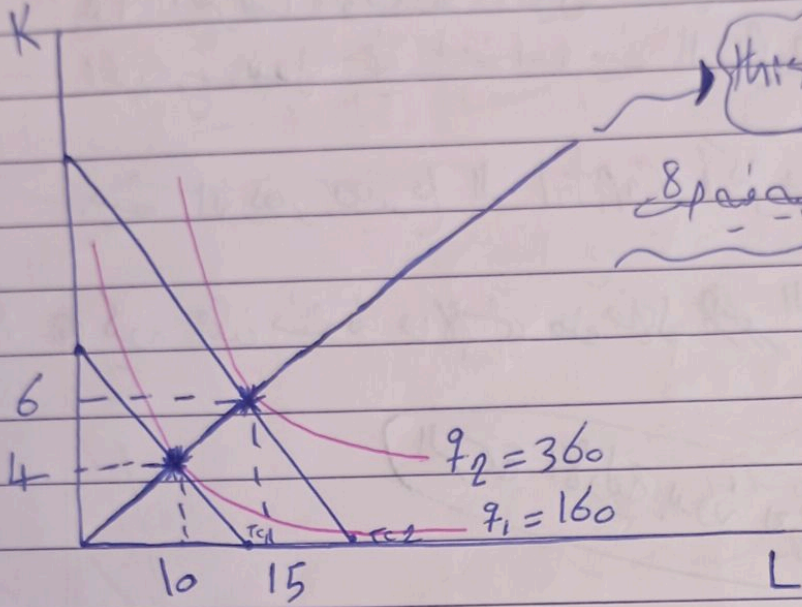 K
this
6
4
q₂ = 360
q₁ = 160
TC1
TC2
10 15
L